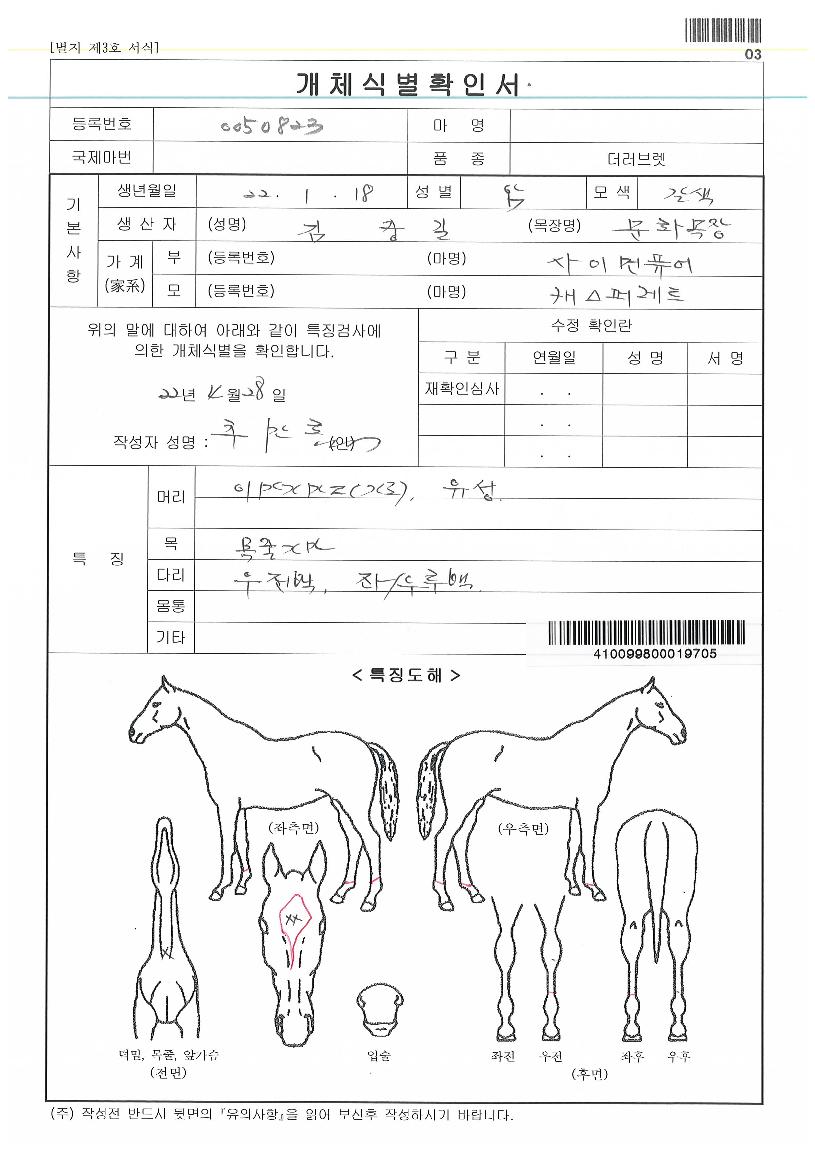 [별지 제3호 서식]
03
개체식별확인서
등록번호 0050823 마 명
국제마번 품 종 더러브렛
기본사항
생년월일 22. 1. 18 성별 암 모색 갈색
생산자 (성명) 김 중 길 (목장명) 문화목장
가계(家系) 부 (등록번호) (마명) 사이먼퓨어
모 (등록번호) (마명) 캐스퍼레트
위의 말에 대하여 아래와 같이 특징검사에
의한 개체식별을 확인합니다.
22년 4월 28일
작성자 성명 : (인)
수정 확인란
구 분 연월일 성 명 서 명
재확인심사 . .
. .
. .
특 징
머리 유성
목 목줄
다리 우전백,
몸통
기타
410099800019705
< 특징도해 >
(좌측면) (우측면)
턱밑, 목줄, 앞가슴 입술 좌전 우전 좌후 우후
(전면) (후면)
(주) 작성전 반드시 뒷면의 『유의사항』을 읽어 보신후 작성하시기 바랍니다.